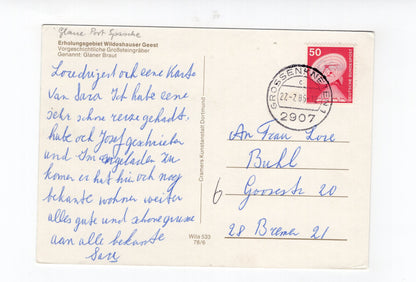 Glane Post Spasche
Erholungsgebiet Wildeshauser Geest
Vorgeschichtliche Großsteingräber
Genannt: Glaner Braut
och eene Karte
van Sara Ich habe eene
sehr schöne reise gehadt.
habe och Josef geschrieben
und Ihn eingeladen zu
komen er hat hir och noog
bekante wohnen weiter
alles gute und schone grusse
aan alle bekante
Sara
Cramers Kunstanstalt Dortmund
Wila 533
78/6
50
DEUTSCHE BUNDESPOST
GROSSENKNETEN 1
c
22-7.85
2907
An Frau Lore
Buhl
Goosestr 20
6
28 Bremen 21